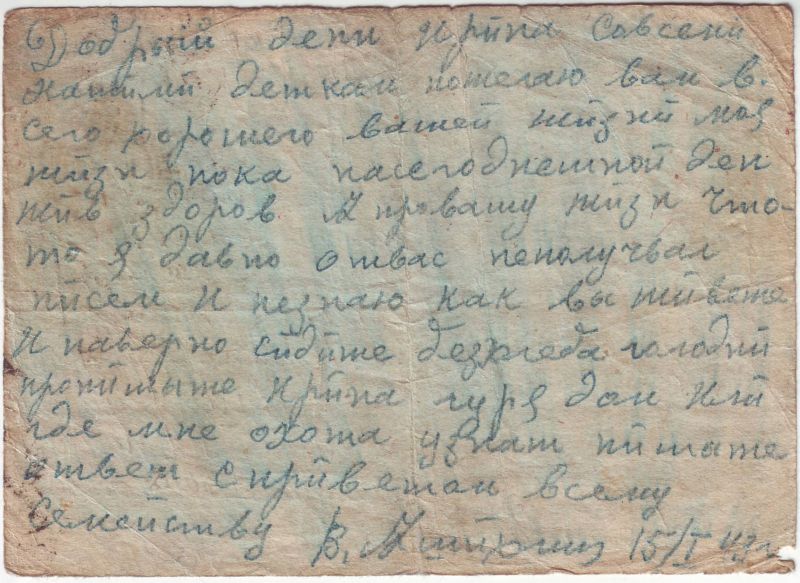 Добрый дени Ирина Совсеми
нашими деткам пожелаю вам в.
сего хорошего вашей жизни моя
жизн пока насегоднешной ден
жив здоров Ипровашу жизн что-
то я давно отвас неполучвал
писем И незнаю как вы живете
И наверно сидите безхлеба голодни
пропишыте Ирина дом Или
где мне охота узнат пишыте
ответ с приветом всему
семейству В. 15/I 43 г